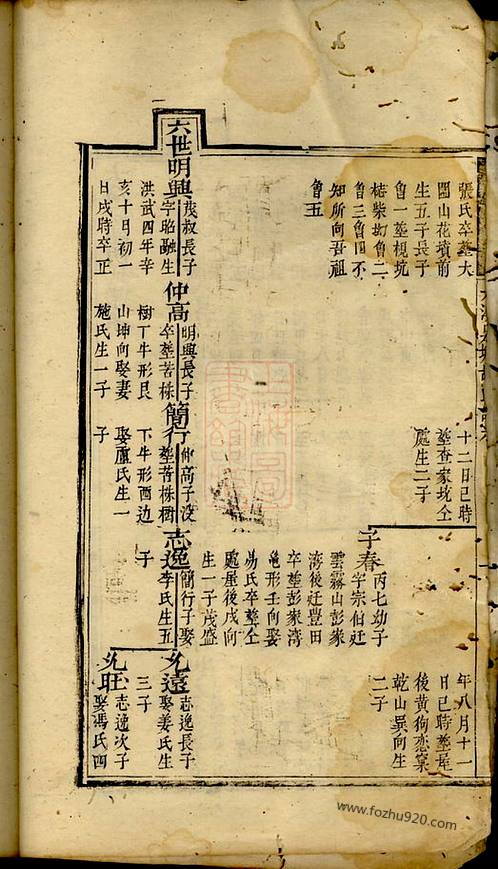 張氏卒塟大
圓山花墳前
生五子長子
魯一塟梘坑
魯二
魯三魯四不
知所向吾祖
魯五
十二日巳時
塟查家坑仝
處生二子
年八月十一
日巳時塟屋
後黃狗戀窠
乾山巽向生
二子
子春
丙七幼子
字宗伯迁
雲霧山彭家
湾後迁豐田
卒塟彭家湾
龜形壬向娶
易氏卒塟仝
處虽後戌向
生一子茂盛
六世明興
茂叔長子
字昭融生
洪武四年辛
亥十月初一
日戌時卒正
仲高
明興長子
卒塟苦株
樹丁牛形艮
山坤向娶妻
施氏生一子
簡行
仲高子没
塟苦株樹
下牛形酉边
娶盧氏生一
子
志逸
簡行子娶
李氏生五
子
允遠
志逸長子
娶姜氏生
三子
允旺
志逸次子
娶馮氏四
www.fozhu920.com